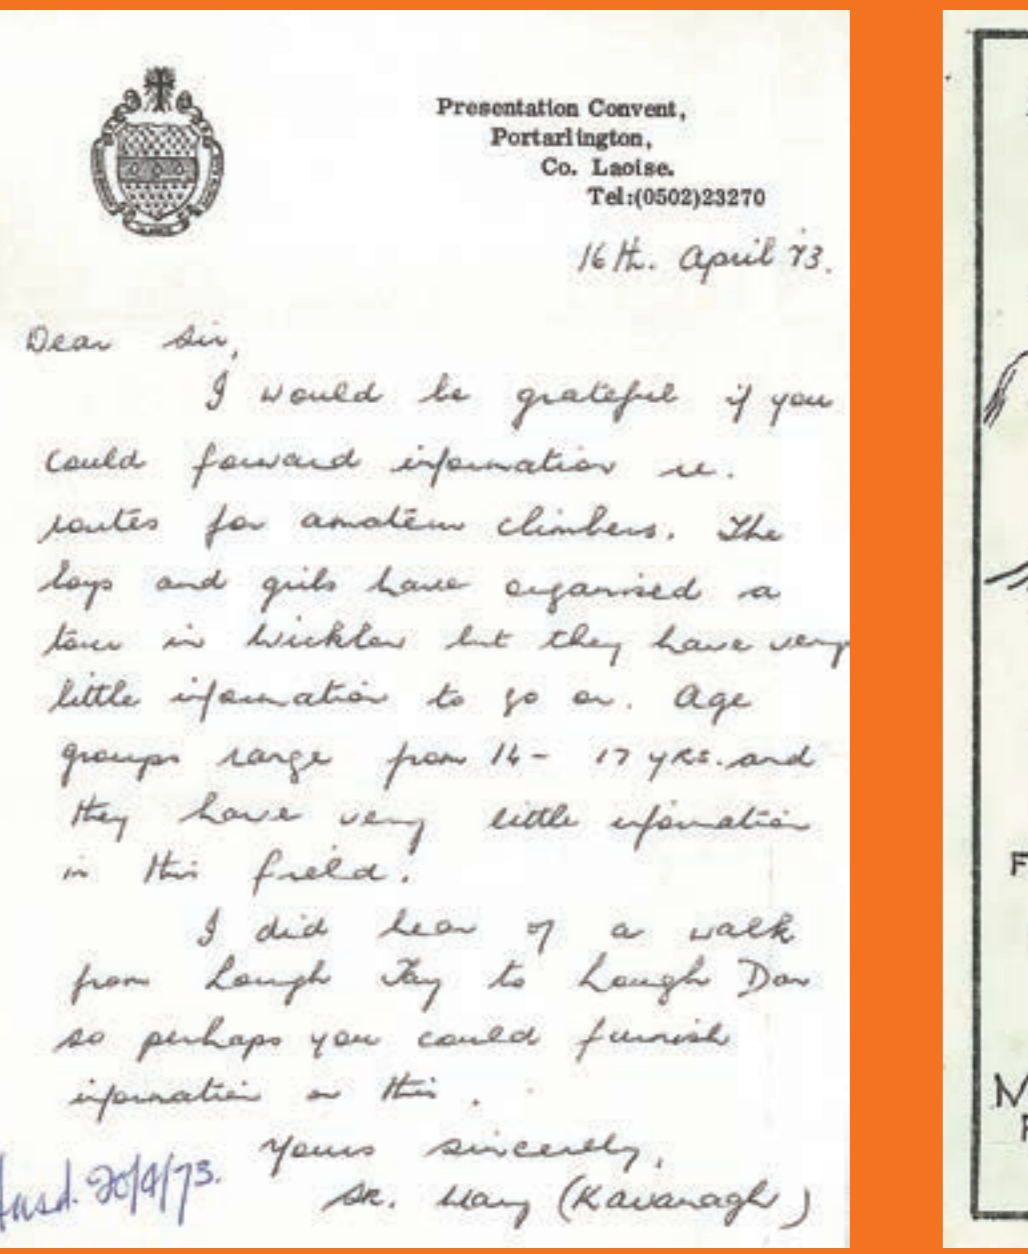 Presentation Convent,
Portarlington,
Co. Laoise.
Tel:(0502)23270
16th. April 73.
Dear Sir,
I would be grateful if you
could forward information re.
routes for amateur climbers. The
boys and girls have organised a
tour in Wicklow but they have very
little information to go on. Age
groups range from 14 - 17 yrs. and
they have very little information
in this field.
I did hear of a walk
from Lough Tay to Lough Dan
so perhaps you could furnish
information on this.
Yours sincerely,
Sr. Mary (Kavanagh)
Ansd. 20/4/73.
F
M